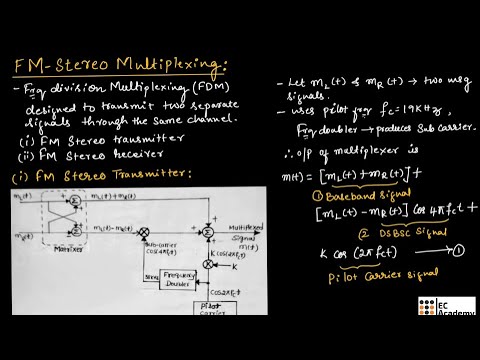 FM-Stereo Multiplexing:
- Frq division Multiplexing (FDM)
designed to transmit two separate
signals through the same channel.
(i) FM Stereo transmitter
(ii) FM Stereo Receiver
(i) FM Stereo Transmitter:
mL(t)
mL(t)+mR(t)
mR(t)
mL(t)-mR(t)
Matrixer
Sub-carrier
cos(4πfct)
Multiplexed
Signal
m(t)
K cos(2πfct)
K
Frequency
Doubler
cos2πfct
Pilot
Carrier
- Let mL(t) & mR(t) → two msg
signals.
- uses pilot frq fc=19KHz,
Frq doubler → produces Sub Carrier.
∴ o/p of multiplexer is
m(t)= [mL(t)+mR(t)] +
① Baseband signal
[mL(t)-mR(t)] cos 4πfct +
② DSBSC Signal
K cos (2πfct) → ①
Pilot Carrier signal
EC
Academy